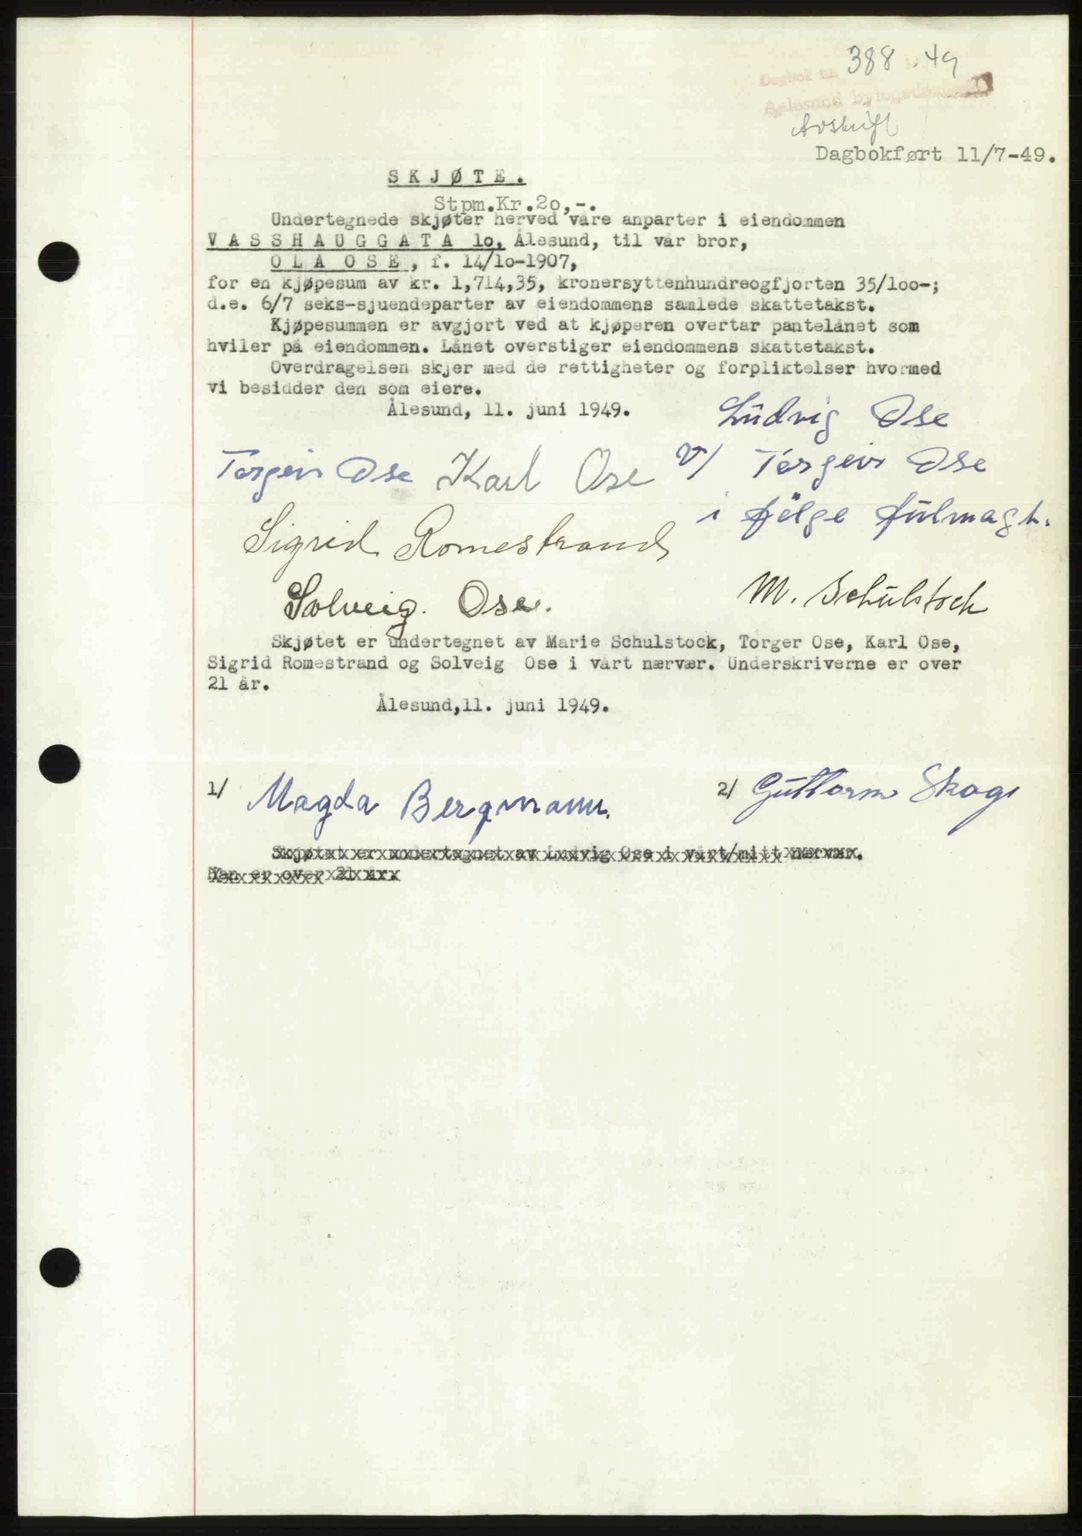 Dagbok nr. 388 . 49
Aalesund
Avskrift
Dagbokført 11/7-49.
SKJØTE.
Stpm.Kr.2o,-.
Undertegnede skjøter herved våre anparter i eiendommen
VASSHAUGGATA 1o, Ålesund, til vår bror,
OLA OSE, f. 14/1o-1907,
for en kjøpesum av kr. 1,714,35, kronersyttenhundreogfjorten 35/1oo-;
d.e. 6/7 seks-sjuendeparter av eiendommens samlede skattetakst.
Kjøpesummen er avgjort ved at kjøperen overtar pantelånet som
hviler på eiendommen. Lånet overstiger eiendommens skattetakst.
Overdragelsen skjer med de rettigheter og forpliktelser hvormed
vi besidder den som eiere.
Ålesund, 11. juni 1949.
Ludvig Ose
Torgeir Ose Karl Ose v/ Torgeir Ose
i følge fulmagt.
Sigrid Romestrand
Solveig. Ose.
M. Schulstock
Skjøtet er undertegnet av Marie Schulstock, Torger Ose, Karl Ose,
Sigrid Romestrand og Solveig Ose i vårt nærvær. Underskriverne er over
21 år.
Ålesund,11. juni 1949.
1/ Magda Bergmann. 2/ Guttorm Skogs
Skjøtet er undertegnet av Ludvig Ose i vårt/mitt nærvær.
Han er over 21 år.